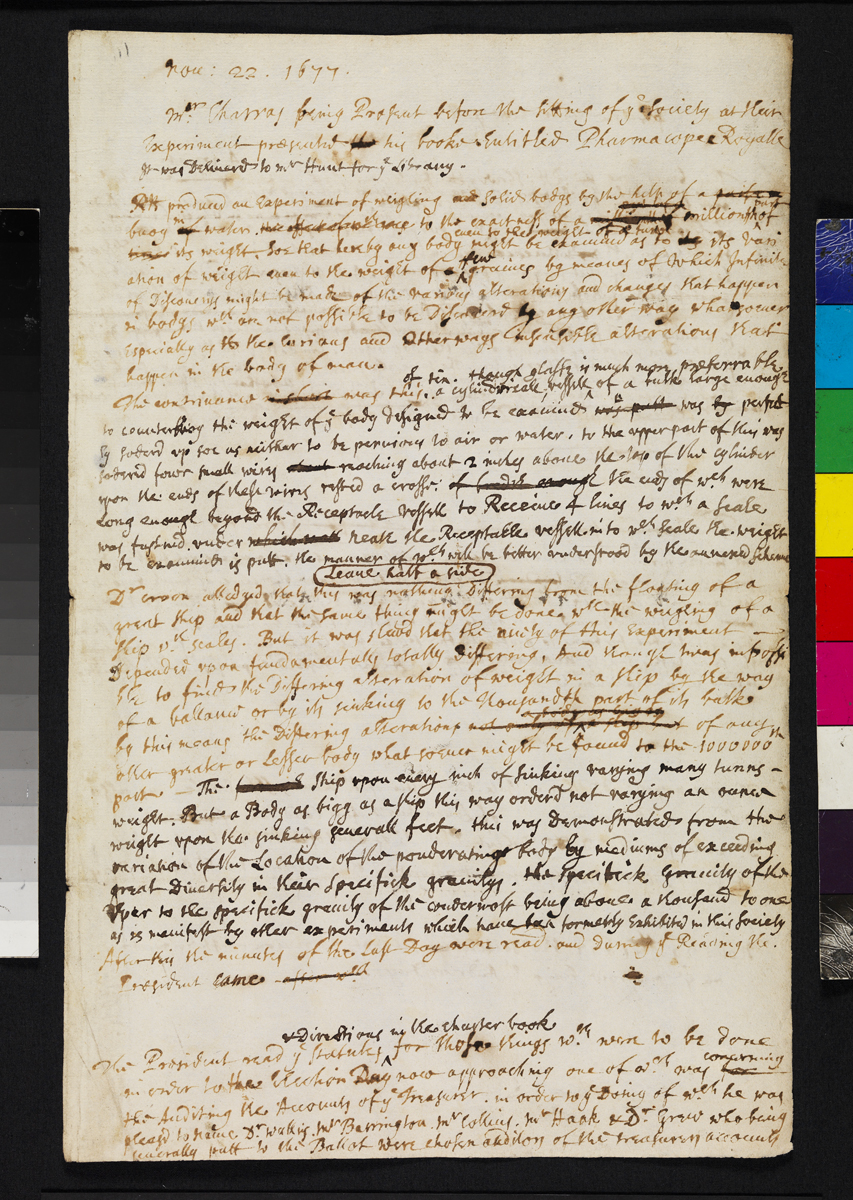 11
Nou: 22. 1677.
Mr. Charras being Present before the sitting of ye Society at their
Experiment presented his booke Entitled Pharmacopee Royalle
it was Deliuerd to Mr Hunt for ye Library.
RH produced an Experiment of weighing solid bodys by the help of a
buoy in water to the exactness of a millionth part of
its weight. Soe that hereby any body euen to the weight of a tunne might be examined as to its vari
ation of weight euen to the weight of a few graines by meanes of which Infinite
of Discouerys might be made of the various alterations and changes that happen
in bodys wch are not possible to be Discouered by any other way whatsoeuer
Especially as to the curious and otherways insensible alterations that
happen in the body of man.
of tin. though glasse is much more preferrable
The contriuance was this. a cylindricall vessell of a bulk large enough
to counterbuoy the weight of ye body designd to be examined was perfect
ly soderd up soe as neither to be peruious to air or water. to the upper part of this was
soderd four small wires reaching about 2 inches aboue the top of the cylinder
upon the ends of these wires rested a crosse. the ends of wch were
long enough beyond the Receptacle vessell to Receiue 4 lines to wch a scale
was fastned under neath the Receptacle vessell into wch scale the weight
to be examined is putt. the manner of wch will be better understood by the annexed scheme
Leaue half a side
Dr croon alledged that this was nothing Differing from the floating of a
great ship and that the same thing might be done wth the weighing of a
ship wth scales. But it was shewd that the nicity of this Experiment
Depended upon fundamentalls totally differing. And though twas impossi
ble to finde the Differing alteration of weight in a ship by the way
of a ballance or by its sinking to the thousandth part of its bulk
by this means the Differing alterations of any
other greater or lesser body what soeuer might be found to the 1000000th
part. - The ship upon euery inch of sinking varying many tunns
weight. But a Body as bigg as a ship this way orderd not varying an ounce
weight upon the sinking seuerall feet. this was Demonstrated from the
variation of the Location of the ponderating body by mediums of exceeding
great Diuersity in their specifick grauitys. the specifick grauity of the
upper to the specifick grauity of the undermost being aboue a thousand to one
as is manifest by other experiments which haue been formerly Exhibited in this Society
After this the minutes of the last Day were read. and during ye Reading the
President came
& Directions in the charter book
The President read ye statutes for those things wch were to be done
in order to the Election Day now approaching one of wch was concerning
the Auditing the Accounts of ye Treasurer. in order to ye Doing of wch he was
pleasd to name Dr wallis. Mr Barrington. Mr Collins. Mr Haak & Dr Grew who being
seuerally putt to the Ballot were chosen auditors of the treasurers accounts